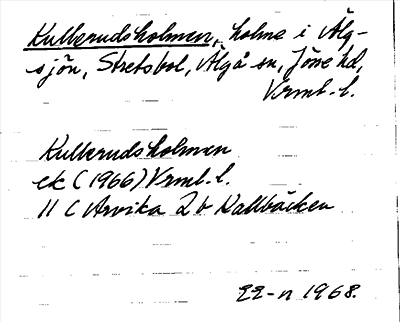 Kullerudsholmen, holme i Älg-
sjön, Stretsbol, Älgå sn, Jösse hd,
Vrml. l.
Kullerudsholmen
ek (1966) Vrml. l.
11 C Arvika 2 b Kallbäcken
22-n 1968.